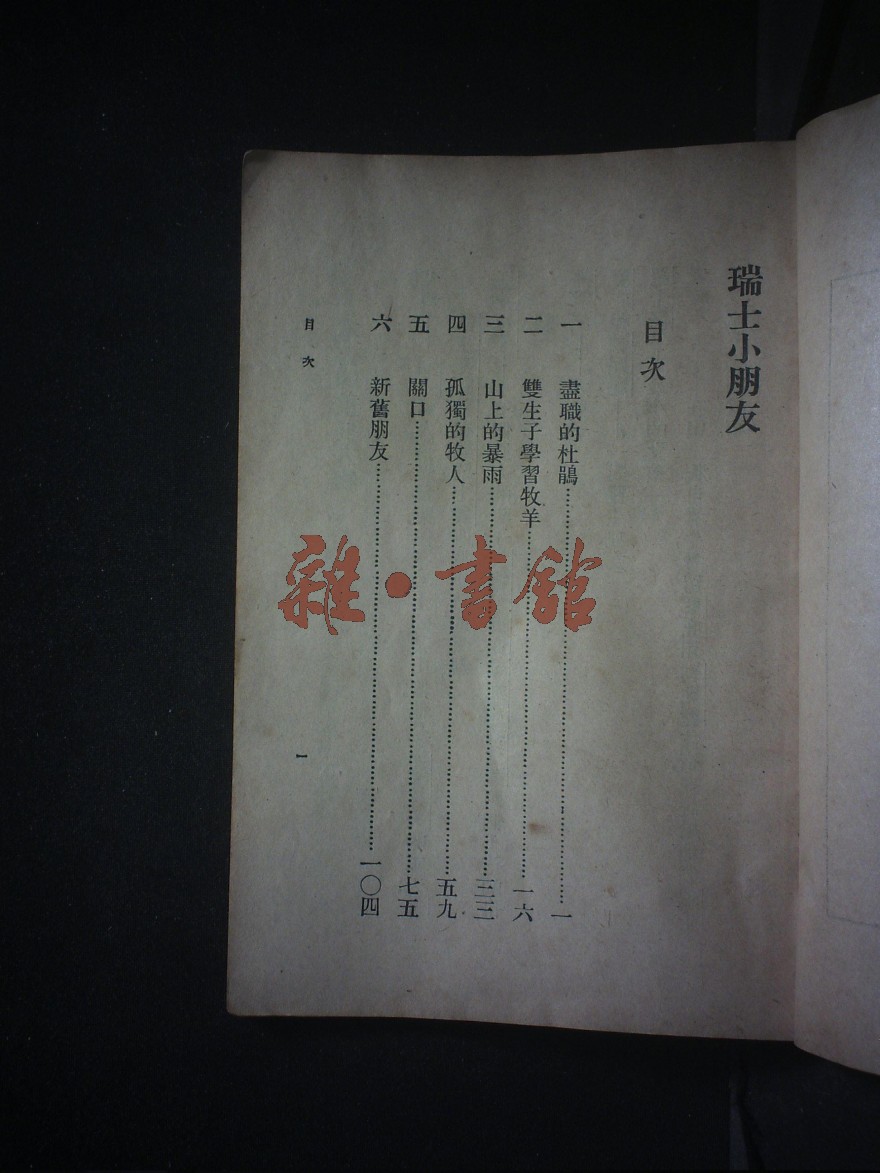 瑞士小朋友
目次
一 盡職的杜鵑……一
二 雙生子學習牧羊……一六
三 山上的暴雨……三三
四 孤獨的牧人……五九
五 關口……七五
六 新舊朋友……一〇四
目次
一
雜·書館